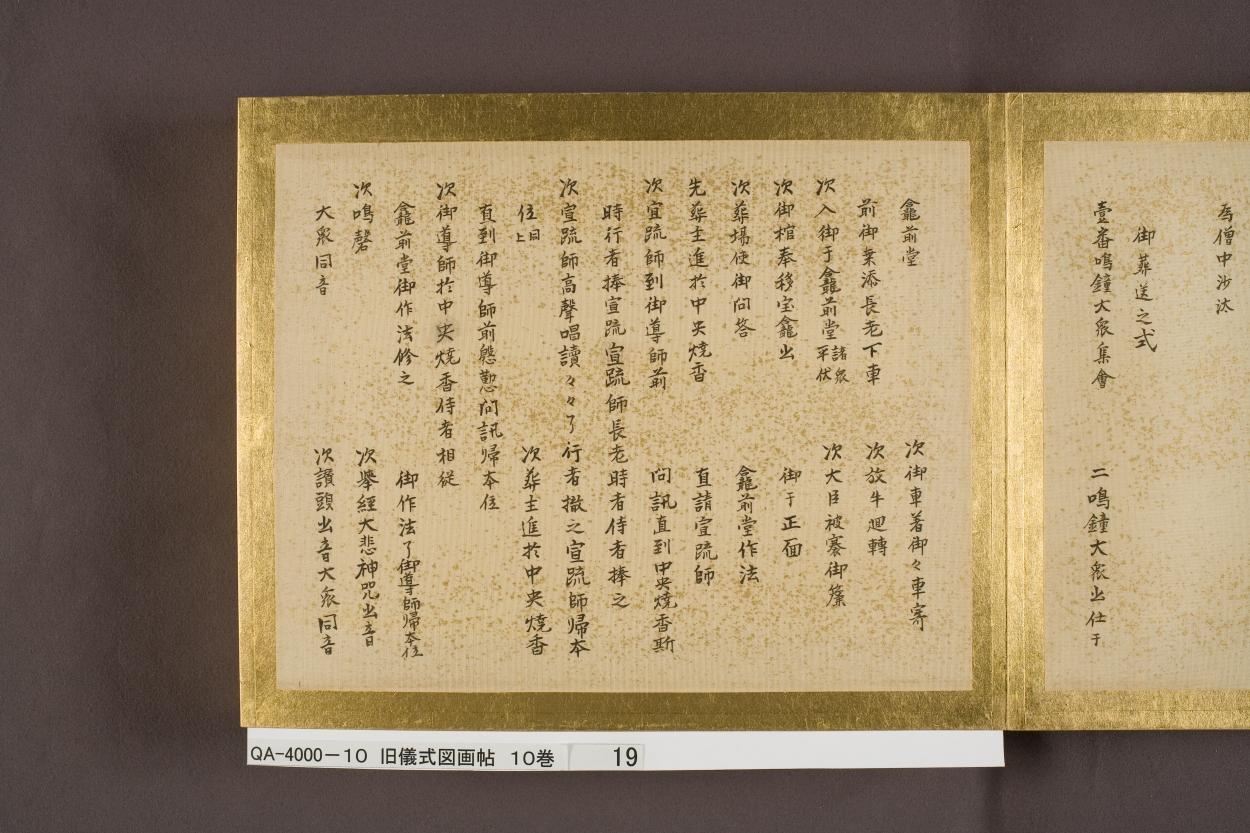 為僧中沙汰
御葬送之式
壹番鳴鐘大衆集會　二鳴鐘大衆出仕于
龕前堂　次御車著御々車寄
前御乗添長老下車　次放牛廻轉
次入御于龕前堂諸衆平伏　次大臣被褰御簾
次御棺奉移宝龕出　御于正面
次葬場使御問答　龕前堂作法
先葬主進於中央燒香　直請宣疏師
次宣疏師到御導師前　問訊直到中央燒香斯
時行者捧宣疏宣疏師長老時者侍者捧之
次宣疏師高聲唱讀々々了行者撤之宣疏師歸本
位上同　次葬主進於中央燒香
直到御導師前慇懃問訊歸本位
次御導師於中央燒香侍者相従
龕前堂御作法修之　御作法了御導師歸本位
次鳴磬　次擧經大悲神咒出音
大衆同音　次讚頭出音大衆同音
QA-4000-10 旧儀式図画帖 10巻 19